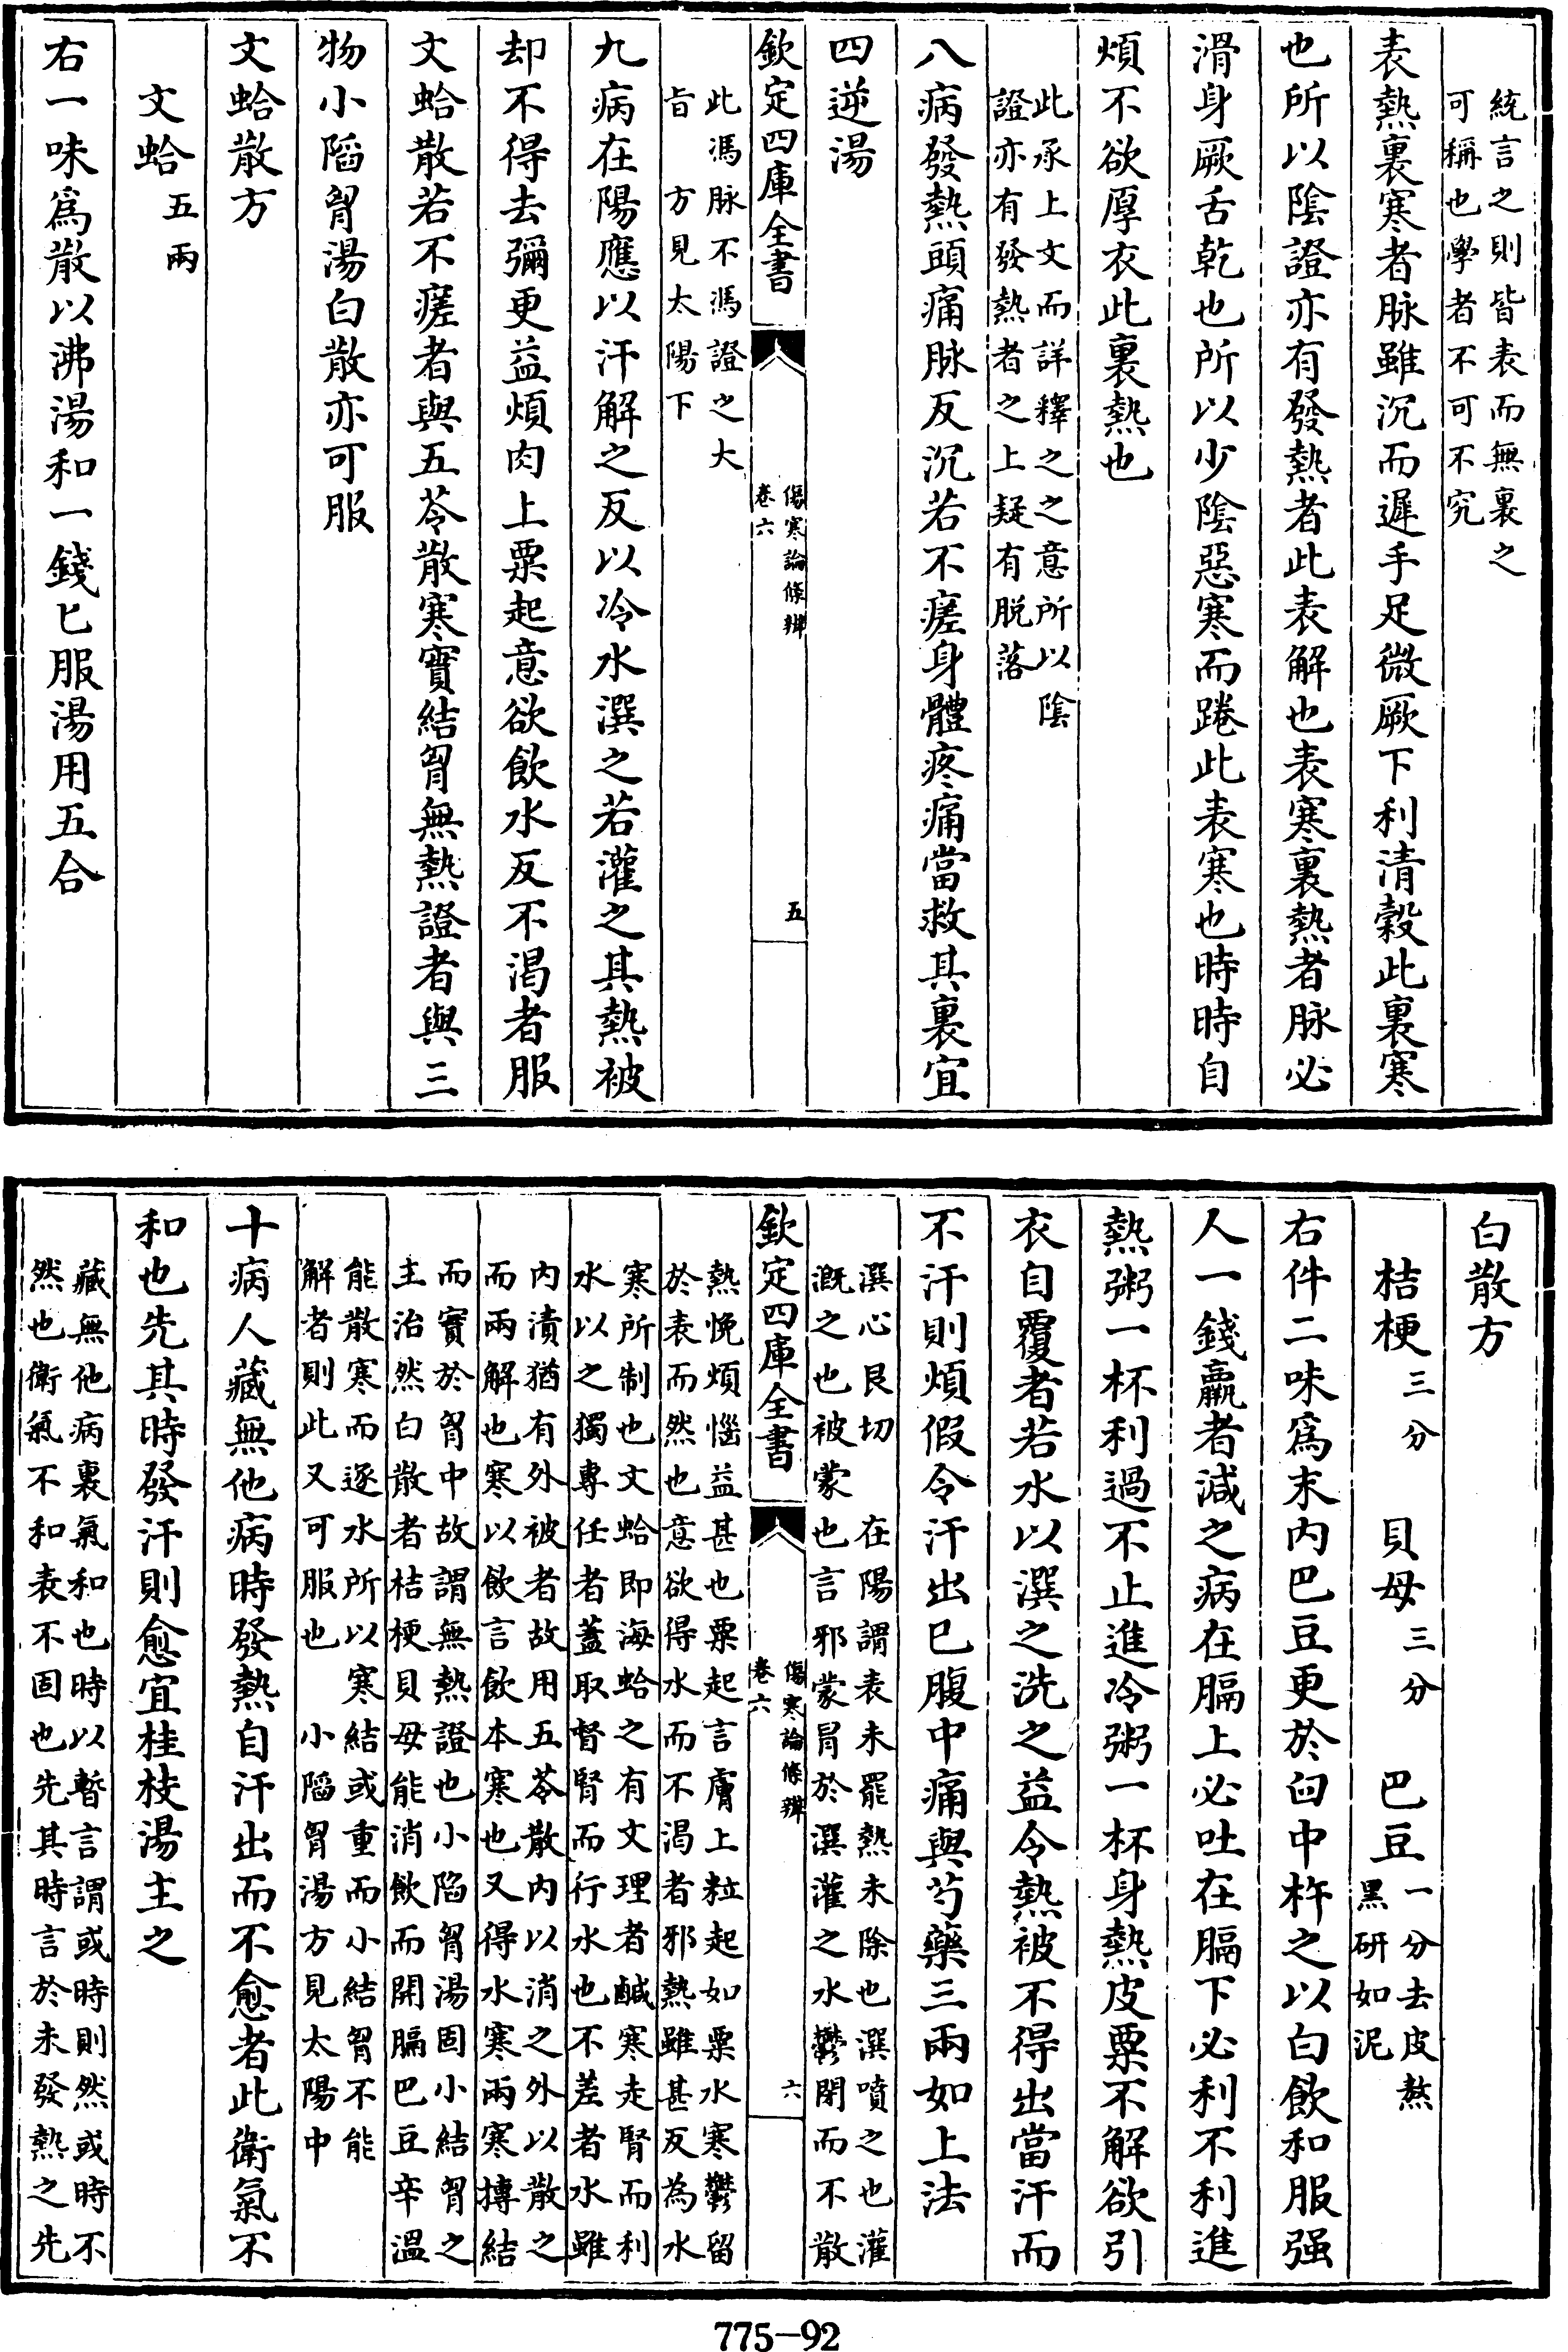 統言之則皆表而無裏之
可稱也學者不可不究
表熱裏寒者脉雖沉而遲手足微厥下利清穀此裏寒
也所以陰證亦有發熱者此表解也表寒裏熱者脉必
滑身厥舌乾也所以少陰惡寒而踡此表寒也時時自
煩不欲厚衣此裏熱也
此承上文而詳釋之之意所以陰
證亦有發熱者之上疑有脱落
八病發熱頭痛脉反沉若不瘥身體疼痛當救其裏宜
四逆湯
欽定四庫全書
傷寒論條辨
卷六
五
此馮脉不馮證之大
旨 方見太陽下
九病在陽應以汗解之反以冷水潠之若灌之其熱被
却不得去彌更益煩肉上粟起意欲飲水反不渴者服
文蛤散若不瘥者與五苓散寒實結胷無熱證者與三
物小陷胷湯白散亦可服
文蛤散方
文蛤五兩
右一味爲散以沸湯和一錢匕服湯用五合
白散方
桔梗三分 貝母三分 巴豆一分去皮熬
黑研如泥
右件二味爲末内巴豆更於臼中杵之以白飲和服强
人一錢羸者減之病在膈上必吐在膈下必利不利進
熱粥一杯利過不止進冷粥一杯身熱皮粟不解欲引
衣自覆者若水以潠之洗之益令熱被不得出當汗而
不汗則煩假令汗出已腹中痛與芍藥三兩如上法
潠心艮切 在陽謂表未罷熱未除也潠噴之也灌
溉之也被蒙也言邪蒙冒於潠灌之水鬱閉而不散
欽定四庫全書
傷寒論條辨
卷六
六
熱悗煩惱益甚也粟起言膚上粒起如粟水寒鬱留
於表而然也意欲得水而不渴者邪熱雖甚反為水
寒所制也文蛤即海蛤之有文理者鹹寒走腎而利
水以之獨專任者蓋取督腎而行水也不差者水雖
内漬猶有外被者故用五苓散内以消之外以散之
而兩解也寒以飲言飲本寒也又得水寒兩寒摶結
而實於胷中故謂無熱證也小陷胷湯固小結胷之
主治然白散者桔梗貝母能消飲而開膈巴豆辛溫
能散寒而逐水所以寒結或重而小結胷不能
解者則此又可服也 小陷胷湯方見太陽中
十病人藏無他病時發熱自汗出而不愈者此衛氣不
和也先其時發汗則愈宜桂枝湯主之
藏無他病裏氣和也時以暫言謂或時則然或時不
然也衛氣不和表不固也先其時言於未發熱之先
775-92